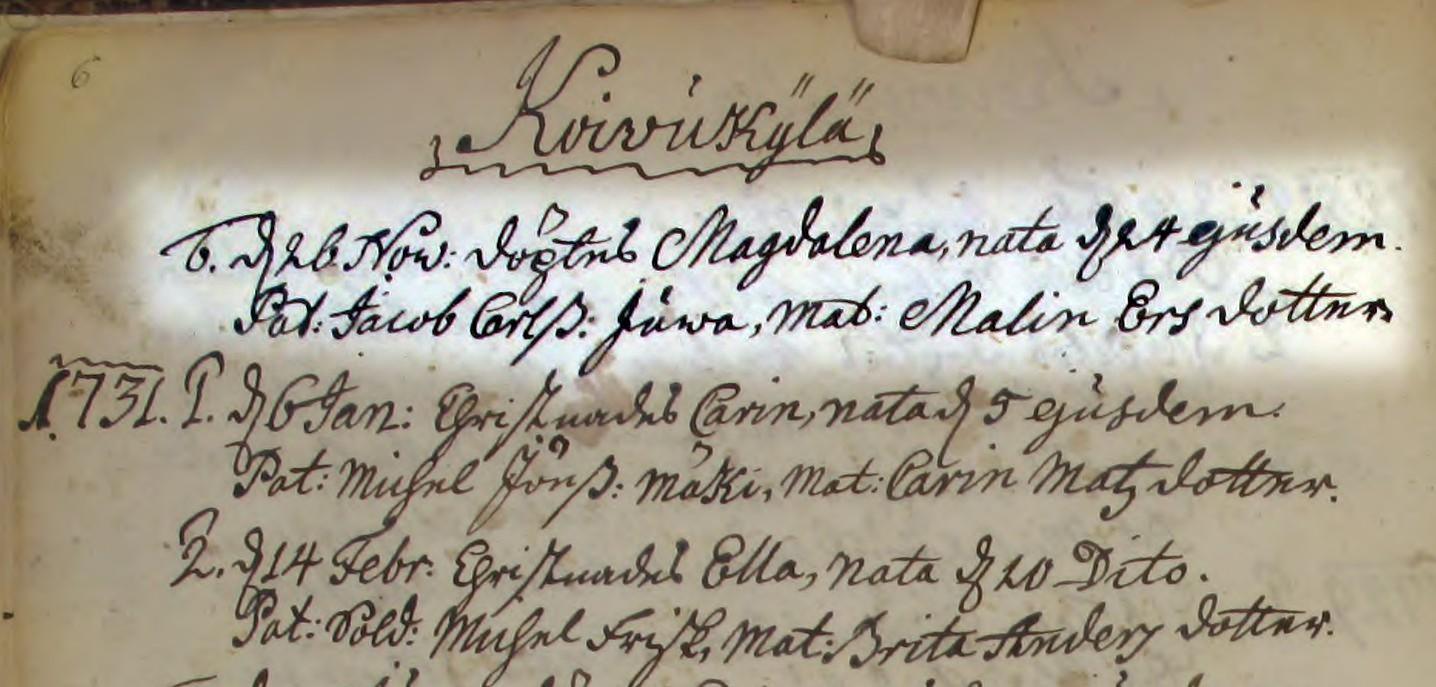 6
Koivukÿlä
6. d 26 Nov: döptes Magdalena, nata d 24 ejusdem.
Pat: Jacob Carlß: Juwa, mat: Malin Ers dotter
1731. 1. d 6 Jan: Christnades Carin, nata d 5 ejusdem.
Pat: Michel Jönß: mäki, mat: Carin Matz dotter.
2. d 14 Febr: Christnades Ella, nata d 10 Dito.
Pat: Sold: Michel Frisk, mat: Brita Anders dotter.